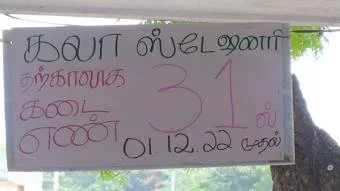 கலா ஸ்டேஷனரி
தற்காலிக
கடை 31ல்
எண் 01.12.22 முதல்